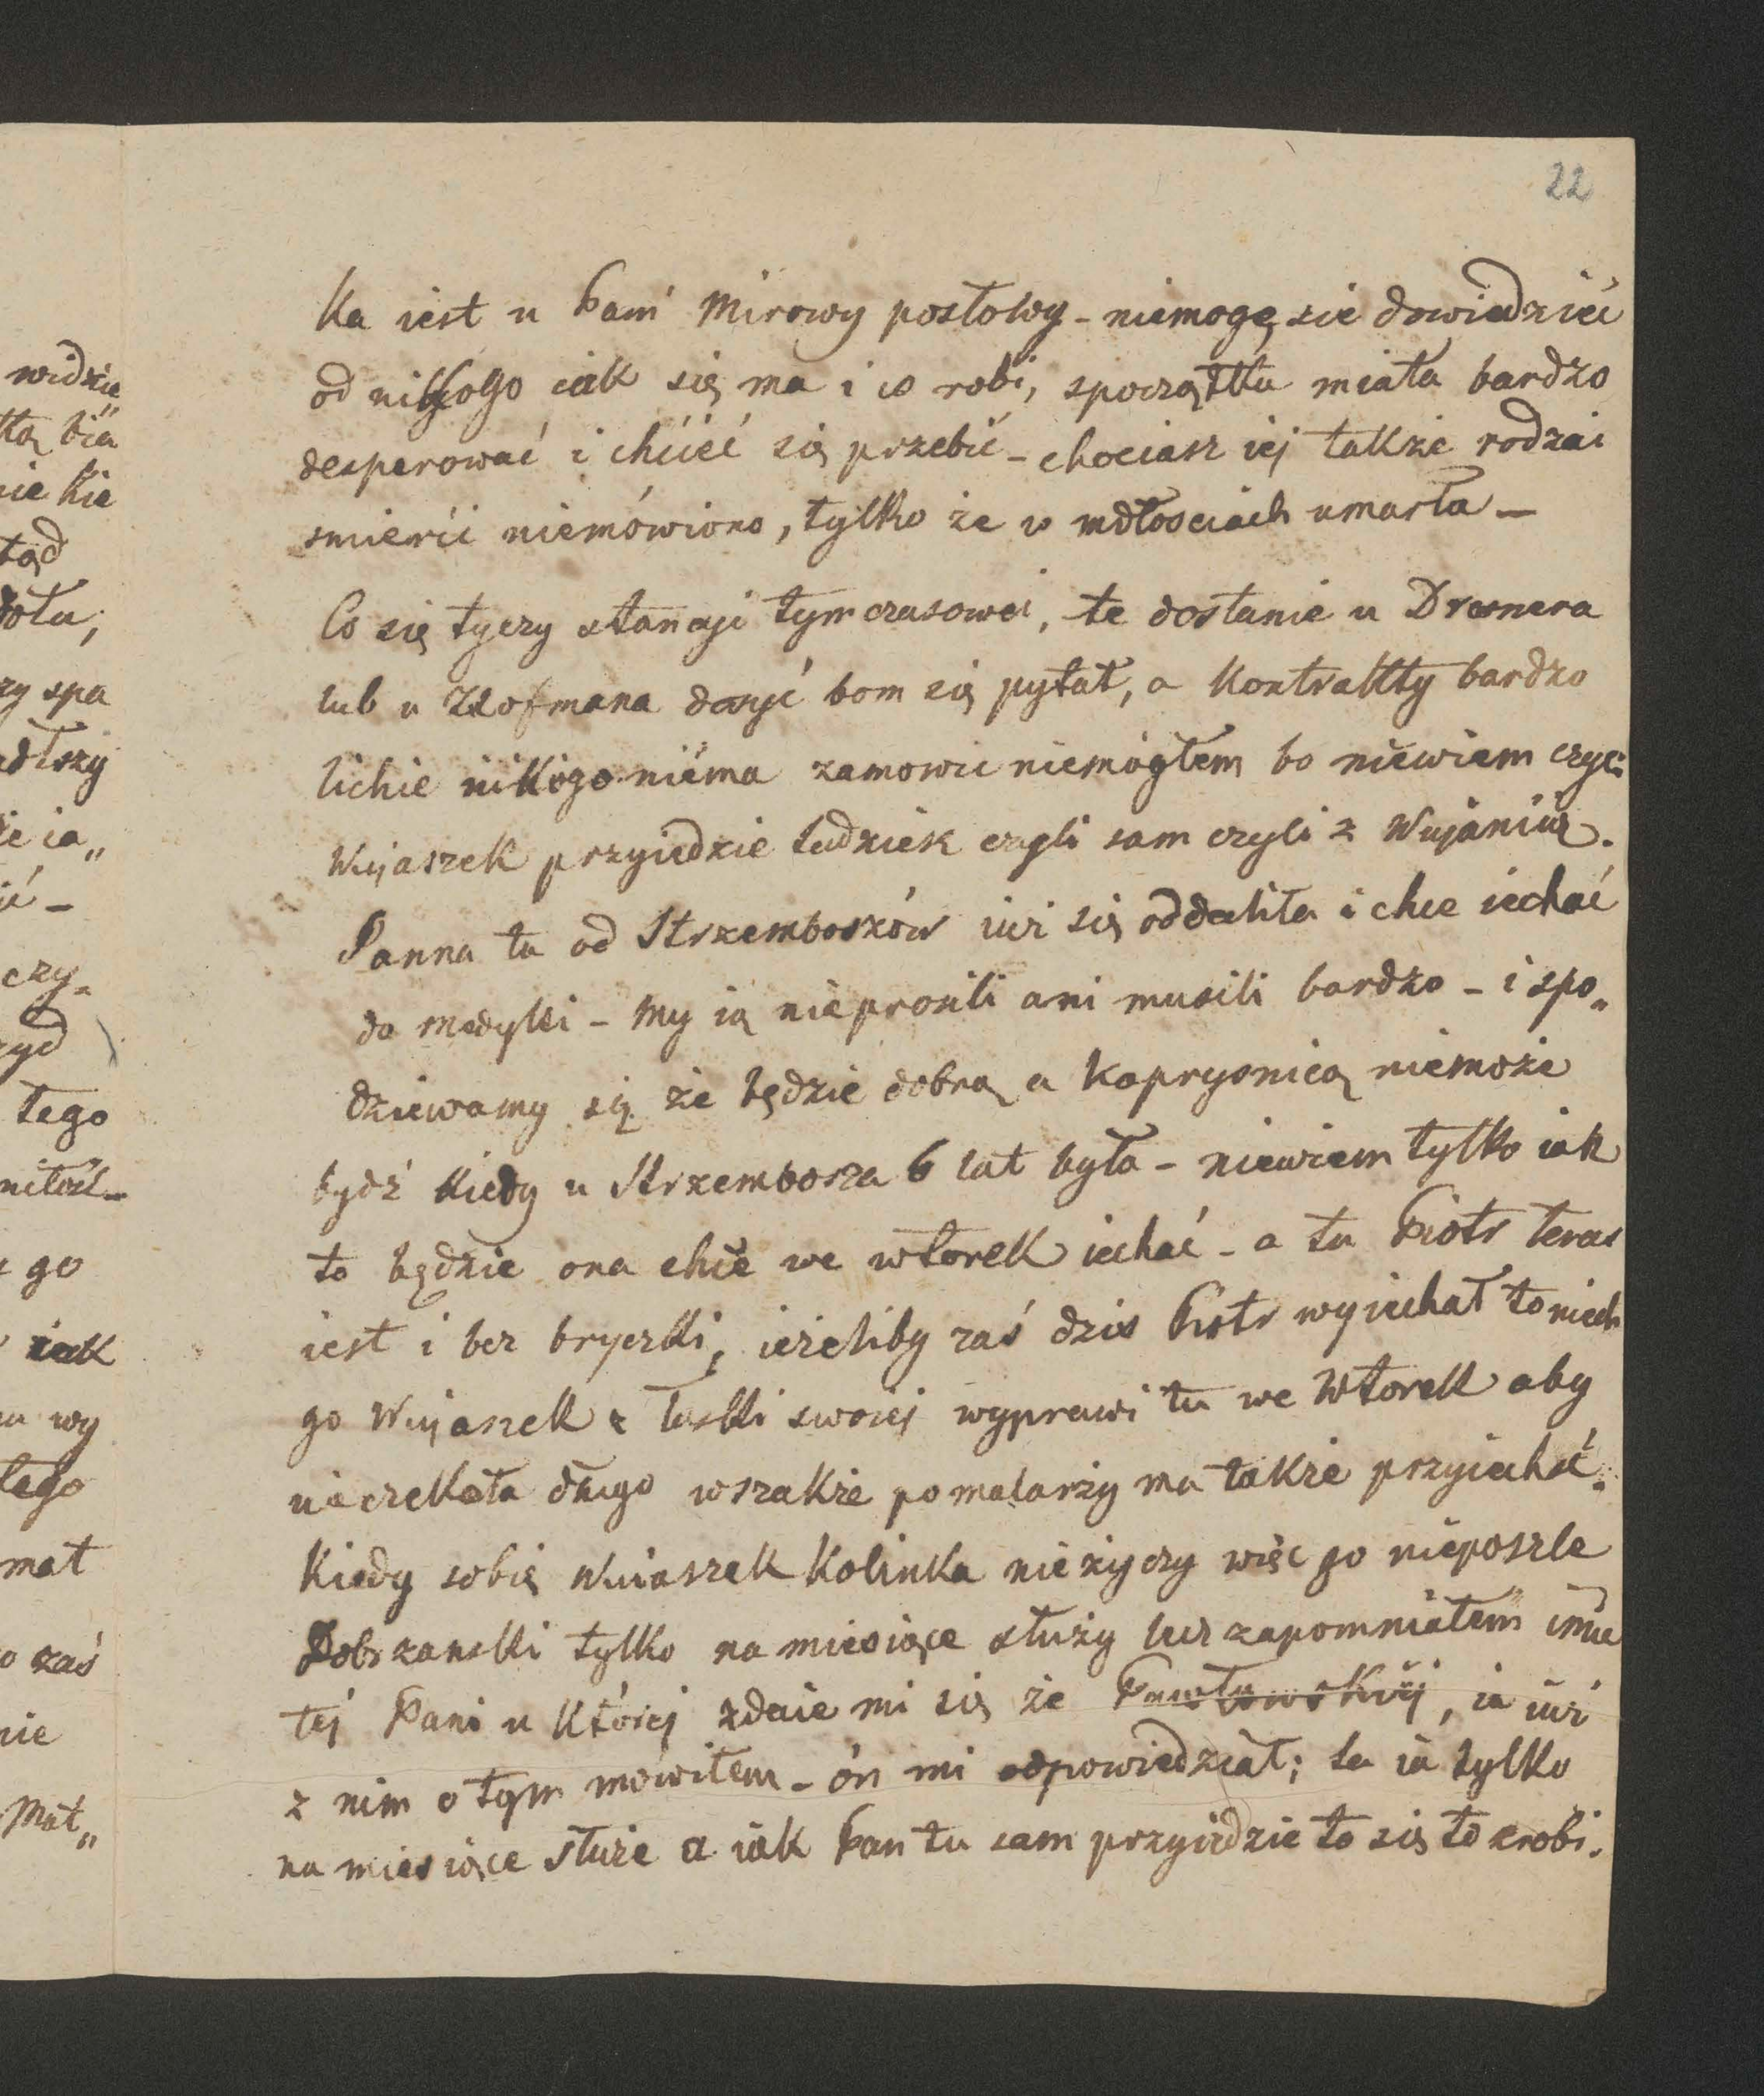 22
ka iest u Pani Mirowy posłowy - niemogę sie dowiedzieć
od nikogo iak się ma i co robi, spoczątku miała bardzo
desperować i chcieć się przebić - chociasz iej takze rodzai
smierci niemówiono, tylko że w mdłosciach umarła -
Co się tyczy stancyi tymczasowei, te dostanie u Dresnera
lub u Hofmana dosyć bom się pytał, a kontrakty bardzo
lichie nikogo niema zamowić niemógłem bo niewiem czyli
Wujaszek przyiedzie ludzisk czyli sam czyli z Wujanią.
Panna ta od Strzemboszów iuż się oddaliła i chce iechać
do Medyki - my ią nieprosili ani musili bardzo - i spo„
dziewamy się że będzie dobra a kaprysnicą niemoże
bydź kiedy u Strzembosza 6 lat była - niewiem tylko iak
to będzie ona chce we wtorek iechać - a tu Piotr teras
iest i bez bryczki, ieżeliby zaś dzis Piotr wyiechał to niech
go Wujaszek z łaski swoiej wyprawi tu we Wtorek aby
nieczekała długo wszakże po malarzy ma także przyiechać.
Kiedy sobie Wuiaszek Kolinka nieżyczy więc go nieposzle
Dobrzanski tylko na miesiące służy lecz zapomniałem imie
tej Pani u któréj zdaie mi się że Pawłowskiéj, ia iuż
z nim o tym mówiłem - ón mi odpowiedział; ta ia tylko
na miesiące służe a iak Pan tu sam przyiedzie to się to zrobi.
widzie
tą bia
nie kie
tąd
dołu,
zy spa
dłszy
że ia„
ić -
czy-
zyd
tego
go
iak
wy
tego
mat
o zaś
nie
Mat„